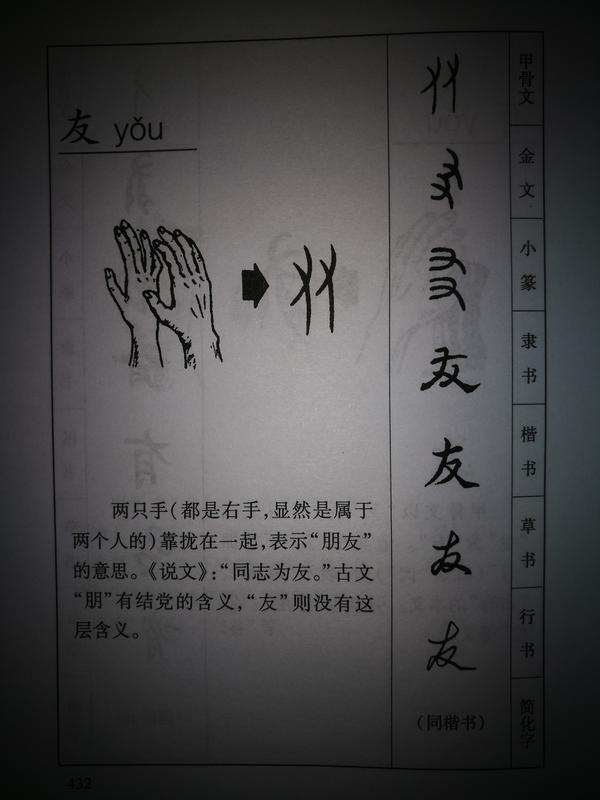 友 yǒu
两只手(都是右手,显然是属于
两个人的)靠拢在一起,表示“朋友”
的意思。《说文》:“同志为友。”古文
“朋”有结党的含义,“友”则没有这
层含义。
甲骨文
金文
小篆
友
隶书
友
楷书
友
草书
友
行书
(同楷书)
简化字
432